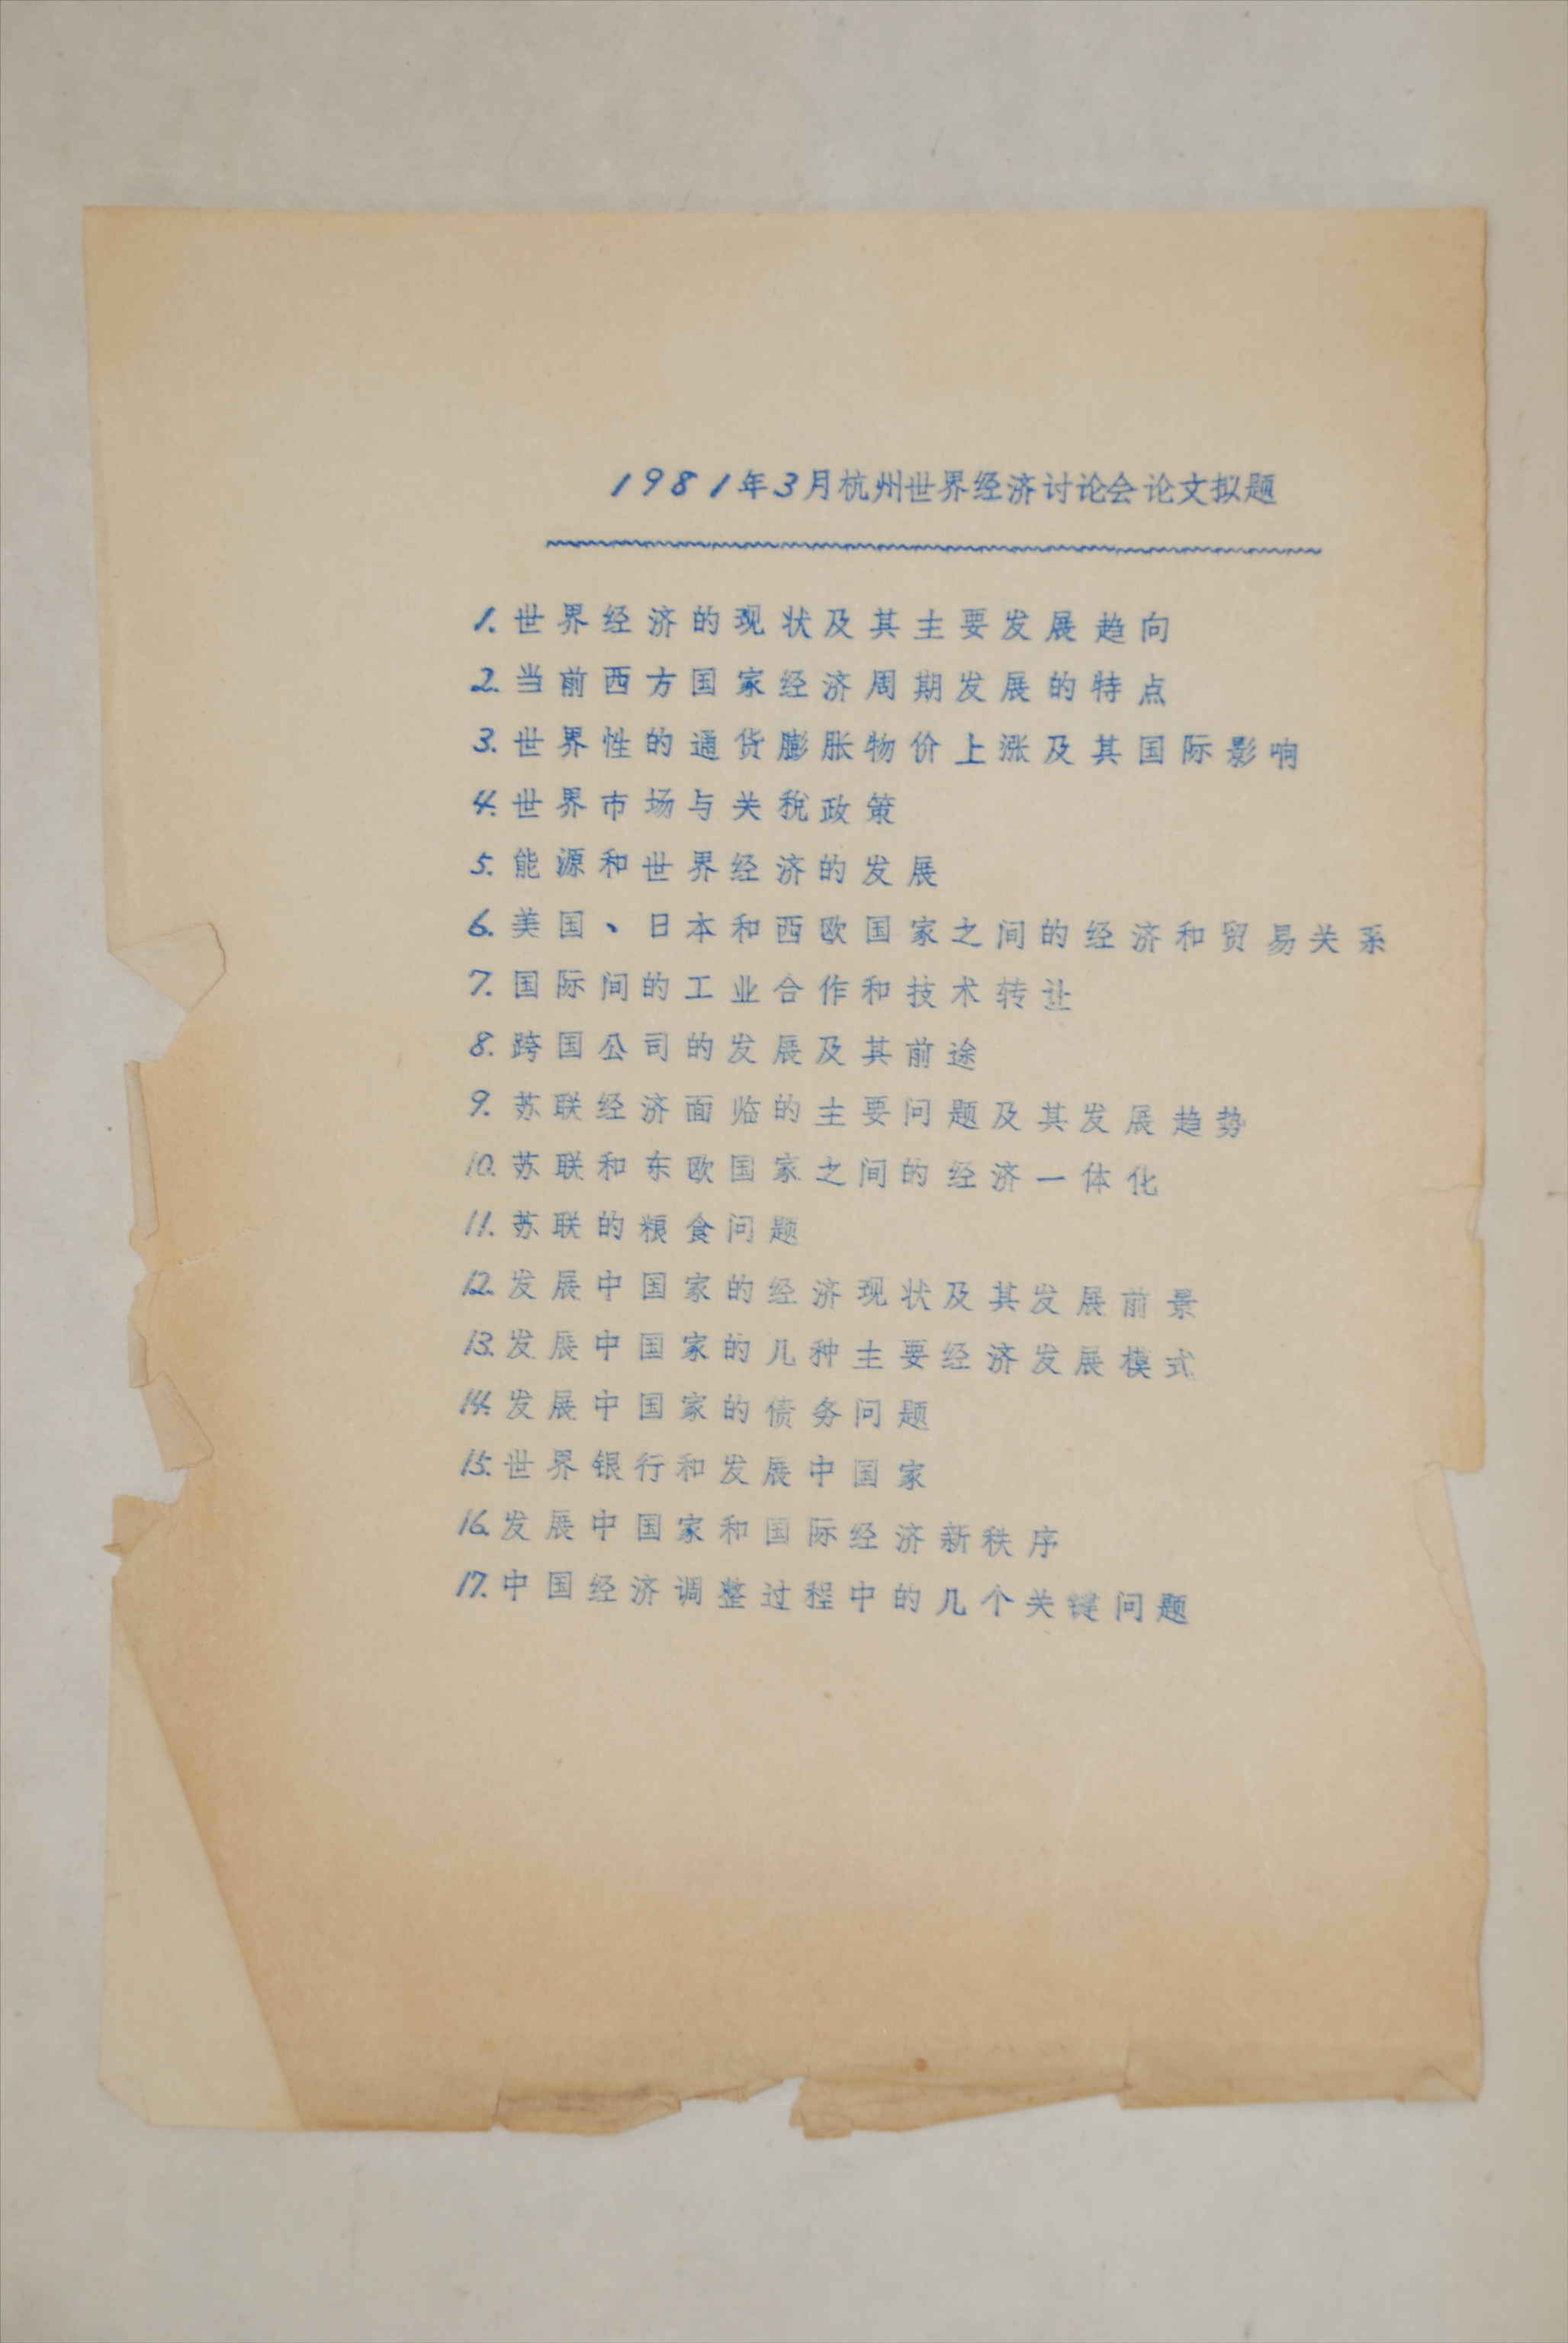 1981年3月杭州世界经济讨论会论文拟题
1.世界经济的现状及其主要发展趋向
2.当前西方国家经济周期发展的特点
3.世界性的通货膨胀物价上涨及其国际影响
4.世界市场与关税政策
5.能源和世界经济的发展
6.美国、日本和西欧国家之间的经济和贸易关系
7.国际间的工业合作和技术转让
8.跨国公司的发展及其前途
9.苏联经济面临的主要问题及其发展趋势
10.苏联和东欧国家之间的经济一体化
11.苏联的粮食问题
12.发展中国家的经济现状及其发展前景
13.发展中国家的几种主要经济发展模式
14.发展中国家的债务问题
15.世界银行和发展中国家
16.发展中国家和国际经济新秩序
17.中国经济调整过程中的几个关键问题